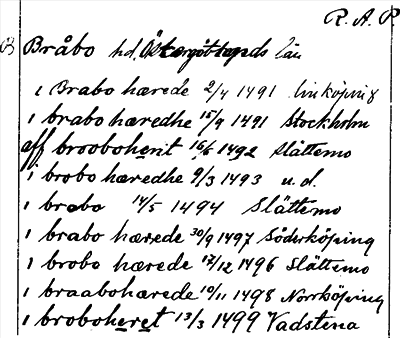 R. A. P.
Bråbo hd. Östergötlands län
i Brabo hærede 2/4 1491 linköping
i brabo hæredhe 15/9 1491 Stockholm
aff brooboherit 16/6 1492 Slättemo
i brobo hæredhe 9/3 1493 u. d.
i brabo 14/5 1494 Slättemo
i brabo hærede 30/9 1497 Söderköping
i brobo hærede 12/12 1496 Slättemo
i braabohærede 10/11 1498 Norrköping
i broboheret 13/3 1499 Vadstena